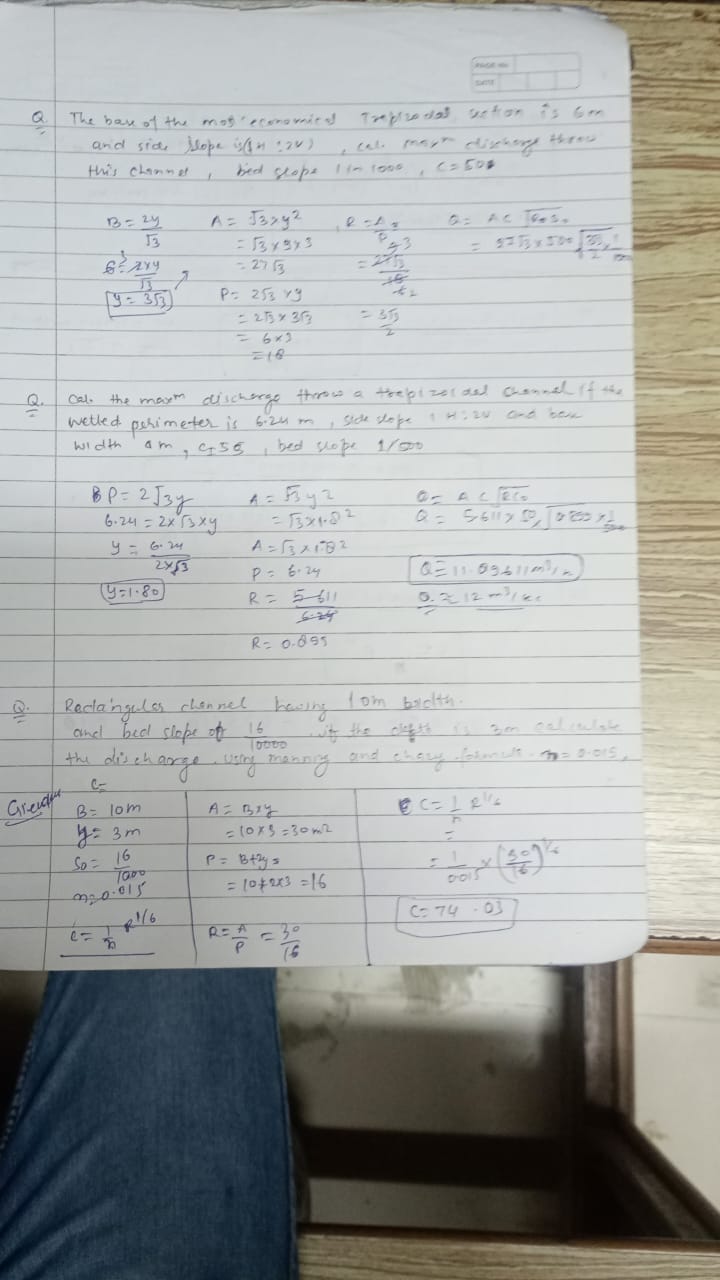 PAGE NO.
DATE
Q. The base of the most economical Trapizodal section is 6m
and side slope is (1H : 2V) , cal. maxm discharge throw
this channel , bed slope 1 in 1000 , C = 50
B = 2y/√3
6 = 2xy/√3
y = 3√3
A = √3 x y2
= √3 x 9 x 3
= 27√3
P = 2√3 x y
= 2√3 x 3√3
= 6 x 3
= 18
R = A/P
= 27√3/18
= 3√3/2
Q = AC √RoSo
Q. Cal. the maxm discharge throw a trepizoidal channel if the
welled perimeter is 6.24 m , side slope 1 H : 2V and base
width m , C = 55 , bed slope 1/500
P = 2√3y
6.24 = 2x√3xy
y = 6.24/2x√3
y = 1.80
A = √3 y2
= √3 x 1.82
A = √3 x 1.82
P = 6.24
R = 5.611/6.24
R = 0.899
Q = A C √RSo
Q ≈ 12 m3/sec
Q. Rectangular channel having 10m bidth.
and bed slope of 16/10000 . if the depth is 3m calculate
the discharge. using manning and chezy formula. n = 0.015,
C=
Given
B = 10m
y = 3m
So = 16/1000
n = 0.015
C = 1/n R1/6
A = Bxy
= 10x3 = 30m2
P = B+2y
= 10+2x3 = 16
R = A/P = 30/16
C = 1/n R1/6
=
= 1/0.015 x (30/16)1/6
C = 74.03